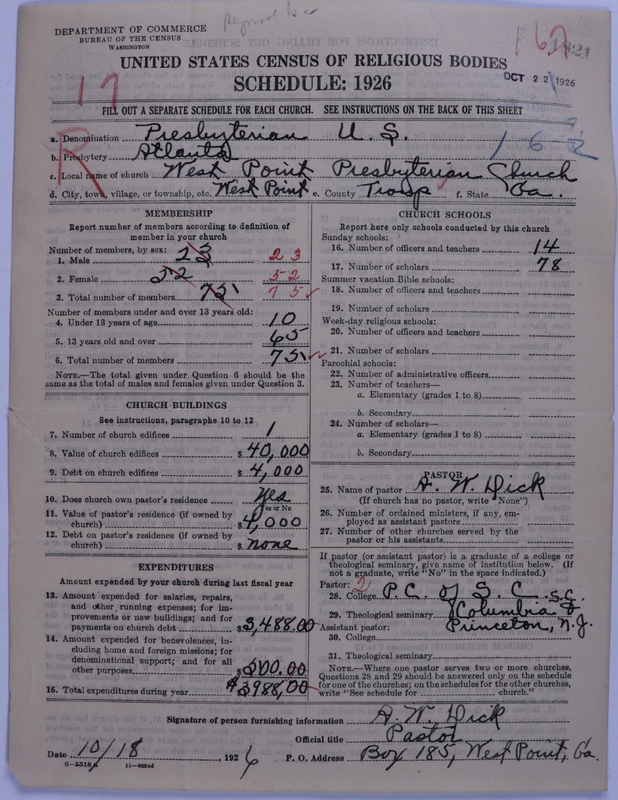 DEPARTMENT OF COMMERCE
BUREAU OF THE CENSUS
WASHINGTON
UNITED STATES CENSUS OF RELIGIOUS BODIES
SCHEDULE: 1926
OCT 22 1926
17
R
162
FILL OUT A SEPARATE SCHEDULE FOR EACH CHURCH. SEE INSTRUCTIONS ON THE BACK OF THIS SHEET
a. Denomination Presbyterian U. S.
b. Presbytery Atlanta
c. Local name of church West Point Presbyterian Church
d. City, town, village, or township, etc. West Point e. County Troup f. State Ga.
MEMBERSHIP
Report number of members according to definition of
member in your church
Number of members, by sex:
1. Male 23 23
2. Female 52 52
3. Total number of members 75 75
Number of members under and over 13 years old:
4. Under 13 years of age 10
5. 13 years old and over 65
6. Total number of members 75
NOTE.—The total given under Question 6 should be the
same as the total of males and females given under Question 3.
CHURCH BUILDINGS
See instructions, paragraphs 10 to 12
7. Number of church edifices 1
8. Value of church edifices $ 40,000
9. Debt on church edifices $ 4,000
10. Does church own pastor's residence Yes
Yes or No
11. Value of pastor's residence (if owned by
church) $ 4,000
12. Debt on pastor's residence (if owned by
church) $ none
EXPENDITURES
Amount expended by your church during last fiscal year
13. Amount expended for salaries, repairs,
and other running expenses; for im-
provements or new buildings; and for
payments on church debt $3,488.00
14. Amount expended for benevolences, in-
cluding home and foreign missions; for
denominational support; and for all
other purposes $500.00
15. Total expenditures during year $3988,00
CHURCH SCHOOLS
Report here only schools conducted by this church
Sunday schools:
16. Number of officers and teachers 14
17. Number of scholars 78
Summer vacation Bible schools:
18. Number of officers and teachers
19. Number of scholars
Week-day religious schools:
20. Number of officers and teachers
21. Number of scholars
Parochial schools:
22. Number of administrative officers
23. Number of teachers—
a. Elementary (grades 1 to 8)
b. Secondary
24. Number of scholars—
a. Elementary (grades 1 to 8)
b. Secondary
PASTOR
25. Name of pastor A. W. Dick
(If church has no pastor, write "None")
26. Number of ordained ministers, if any, em-
ployed as assistant pastors
27. Number of other churches served by the
pastor or his assistants
If pastor (or assistant pastor) is a graduate of a college or
theological seminary, give name of institution below. (If
not a graduate, write "No" in the space indicated.)
Pastor: 2
28. College P.C. of S.C. S.C.
29. Theological seminary Columbia &
Assistant pastor: Princeton, N.J.
30. College
31. Theological seminary
NOTE.—Where one pastor serves two or more churches,
Questions 28 and 29 should be answered only on the schedule
for one of the churches; on the schedules for the other churches,
write "See schedule for church."
Signature of person furnishing information A. W. Dick
Official title Pastor
Date 10/18, 1926 P. O. Address Box 185, West Point, Ga.
8-5318a 11-9084d